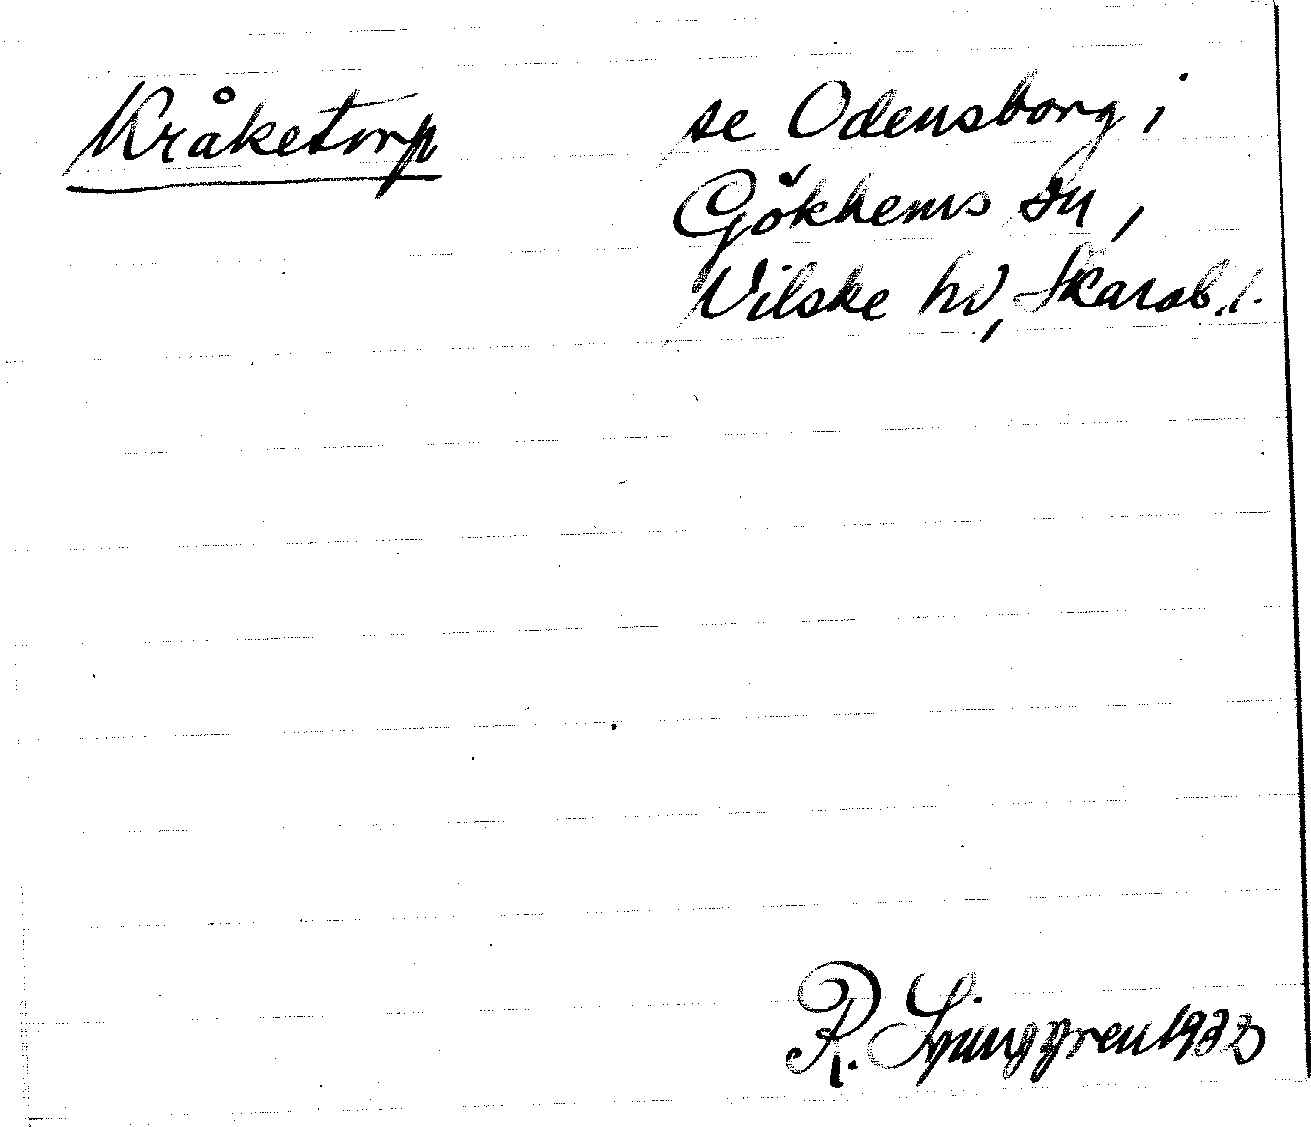 Kråketorp
se Odensborg i
Gökhems sn,
Vilske hd, Skarab. l.
R. Ljunggren 1932